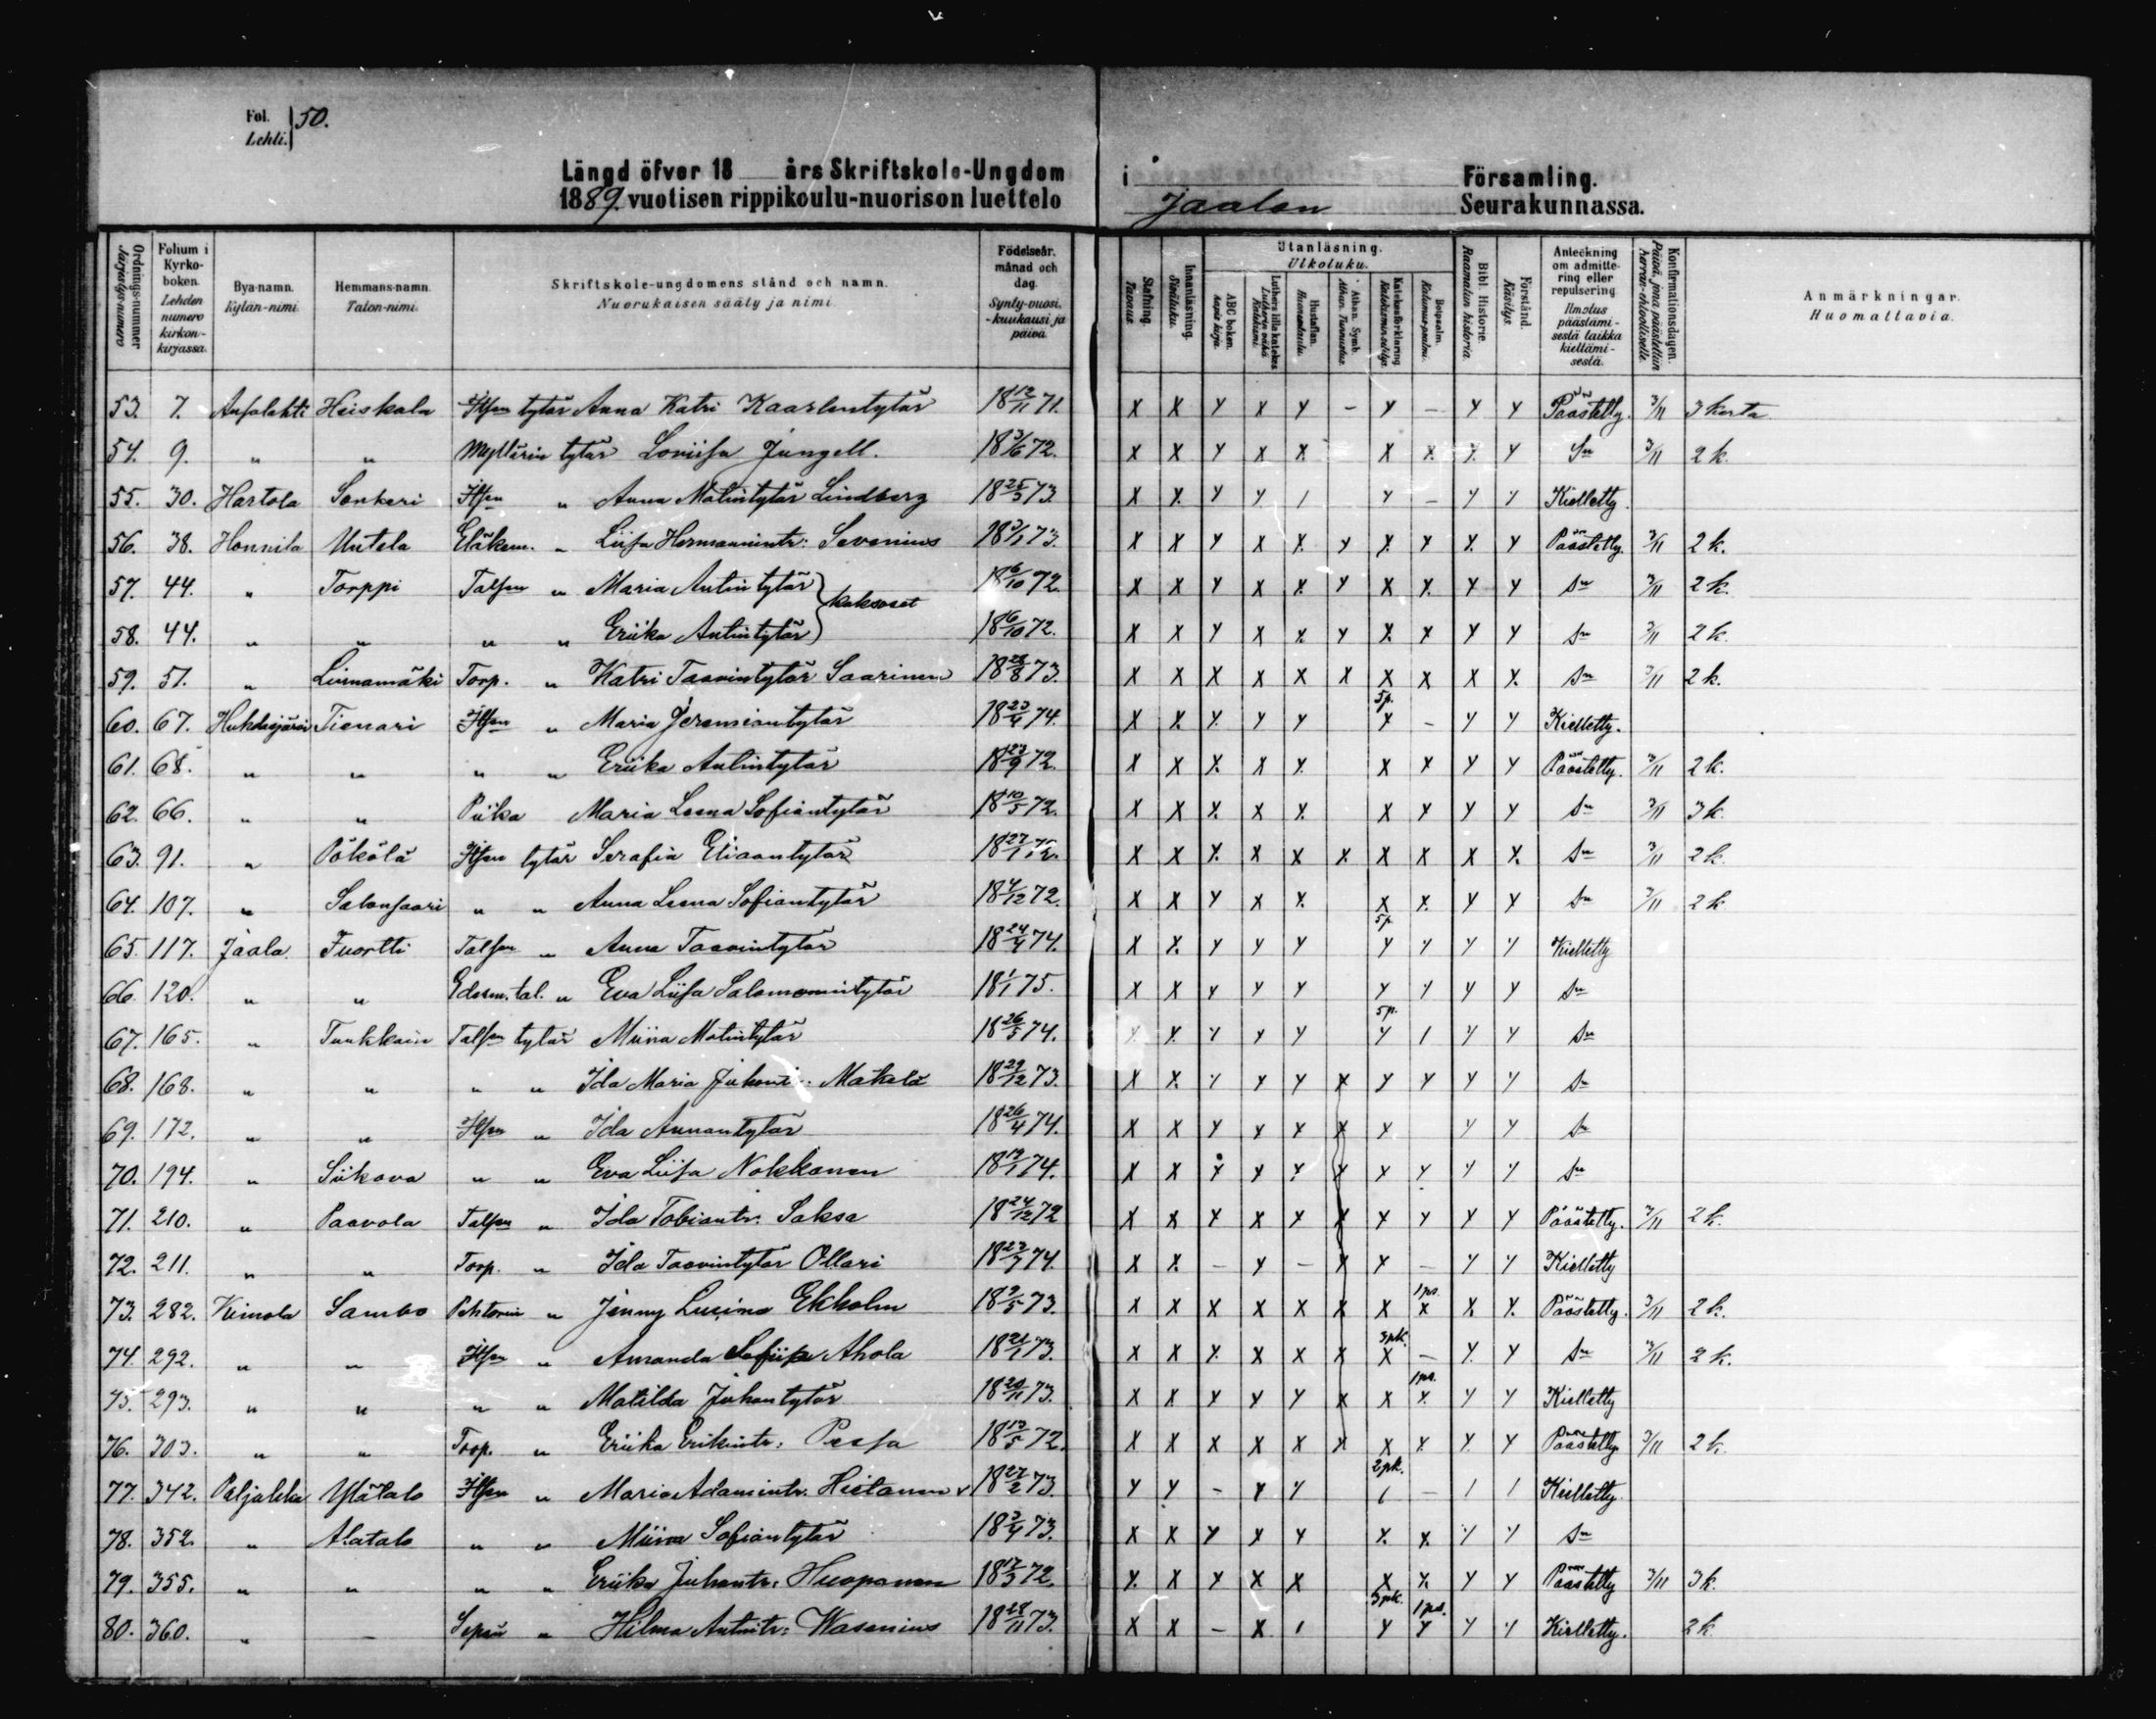 Fol. Lehti. 50.
Längd öfver 18 års Skriftskole-Ungdom i Församling.
1889. vuotisen rippikoulu-nuorison luettelo Jaalan Seurakunnassa.
Ordnings-nummer Järjestys-numero
Folium i Kyrko-boken. Lehden numero kirkon-kirjassa.
Bya-namn. Kylän-nimi.
Hemmans-namn. Talon-nimi.
Skriftskole-ungdomens stånd och namn. Nuorukaisen sääty ja nimi.
Födelseår, månad och dag. Synty-vuosi, -kuukausi ja päivä.
Stafning. Tavaus.
Innanläsning. Sisäluku.
Utanläsning. Ulkoluku.
ABC boken. Aapis kirja.
Luthers lilla katekes Lutherin vähä Katekismi.
Hustaflan. Huoneentaulu.
Athan. Symb. Athan. Tunnustus.
Katekesförklaring Katekismuselitys.
Botpsalm. Katumus-psalmi.
Bibl. Historie. Raamatun historia.
Förstånd. Käsitys.
Anteckning om admittering eller repulsering Ilmotus päästämisestä taikka kieltämisestä.
Konfirmationsdagen. Päivä, jona päästettiin herran-ehtoolliselle.
Anmärkningar. Huomattavia.
53. 7. Ansalahti Heiskala Itsen tytär Anna Katri Kaarlentytär 18 12/11 71. X X Y X Y – Y – Y Y Päästetty. 3/11 3 kerta
54. 9. " " Myllärin tytär Loviisa Jungell. 18 3/6 72. X X Y X X X X Y Y Sn 3/11 2 k.
55. 30. Hartola Sonkeri Itsen " Anna Matintytär Lindberg 18 25/3 73. X X Y Y / Y – Y Y Kielletty.
56. 38. Honnila Uutela Eläkem. " Liisa Hermannintr: Savenius 18 3/1 73. X X Y X X Y X Y X Y Päästetty. 3/11 2 k.
57. 44. " Torppi Talsen " Maria Antintytär } kaksoset 18 6/10 72. X X Y X X Y X X Y Y Sn 3/11 2 k.
58. 44. " " " " Eriika Antintytär 18 6/10 72. X X Y X X Y X X Y Y Sn 3/11 2 k.
59. 51. " Linnamäki Torp. " Katri Taavintytär Saarinen 18 28/8 73. X X X X X X X X X X Sn 3/11 2 k.
60. 67. Huhdasjärvi Tienari Itsen " Maria Jeremiantytär 18 23/4 74. X X X Y Y 5p. Y – Y Y Kielletty.
61. 68. " " " " Eriika Antintytär 18 23/9 72. X X X X Y X X Y Y Päästetty. 3/11 2 k.
62. 66. " " Piika Maria Leena Sofiantytär 18 10/5 72. X X X X X X Y Y Y Sn 3/11 3 k.
63. 91. " Pökölä Itsen tytär Serafia Eliaantytär 18 27/1 72. X X X X X X X X X X Sn 3/11 2 k.
64. 107. " Salonsaari " " Anna Leena Sofiantytär 18 4/12 72. X X Y X X X X Y Y Sn 3/11 2 k
65. 117. Jaala Fuortti Talsen " Anna Taavintytär 18 24/4 74. X X Y Y Y 5p Y Y Y Y Kielletty
66. 120. " " Edesm. tal. " Eva Liisa Salomonintytär 18 1/1 75. X X Y Y Y Y Y Y Y Sn
67. 165. " Tuukkain Talsen tytär Miina Matintytär 18 26/5 74. Y X Y Y Y 5p. Y / Y Y Sn
68. 168. " " " " Ida Maria Juhantr: Mäkelä 18 29/12 73. X X Y Y Y X Y Y Y Y Sn
69. 172. " " Itsen " Ida Annantytär 18 26/4 74. X X Y Y Y X Y Y Y Sn
70. 194. " Siikava " " Eva Liisa Nokkanen 18 19/1 74. X X Y Y Y Y Y Y Y Y Sn
71. 210. " Paavola Talsen " Ida Tobiantr. Saksa 18 24/12 72 X X Y X Y X Y Y Y Y Päästetty. 3/11 2 k.
72. 211. " " Torp. " Ida Taavintytär Ollari 18 23/7 74. X X – Y – X Y – Y Y Kielletty
73. 282. Kimola Sambo Pehtorin " Jenny Lucina Ekholm 18 2/5 73. X X X X X X X 1 ps. X X X Päästetty. 3/11 2 k.
74. 292. " " Itsen " Amanda Sofiia Ahola 18 21/1 73. X X X X X X 3 pk. X – X Y Sn 3/11 2 k.
75. 293. " " " " Matilda Juhantytär 18 20/11 73. X X Y Y Y X X 1 ps. X Y Y Kielletty
76. 303. " " Torp. " Eriika Erikintr: Pessa 18 13/5 72. X X X X X X X X Y Y Päästetty 3/11 2 k.
77. 342. Paljakka Ylätalo Itsen " Maria Adamintr. Hietanen 18 27/2 73. Y Y – Y Y 2 pk. / – / / Kielletty
78. 352. " Alatalo " " Miina Sofiantytär 18 3/4 73. X X Y X Y X X Y Y Sn
79. 355. " " " " Eriika Juhantr: Huopanen 18 17/3 72. X X Y X X X X Y Y Päästetty 3/11 3 k.
80. 360. " – Sepän " Hilma Antintr: Wasenius 18 28/11 73. X X – X / 3 pk. Y 1 ps. Y Y Y Kielletty. 2 k